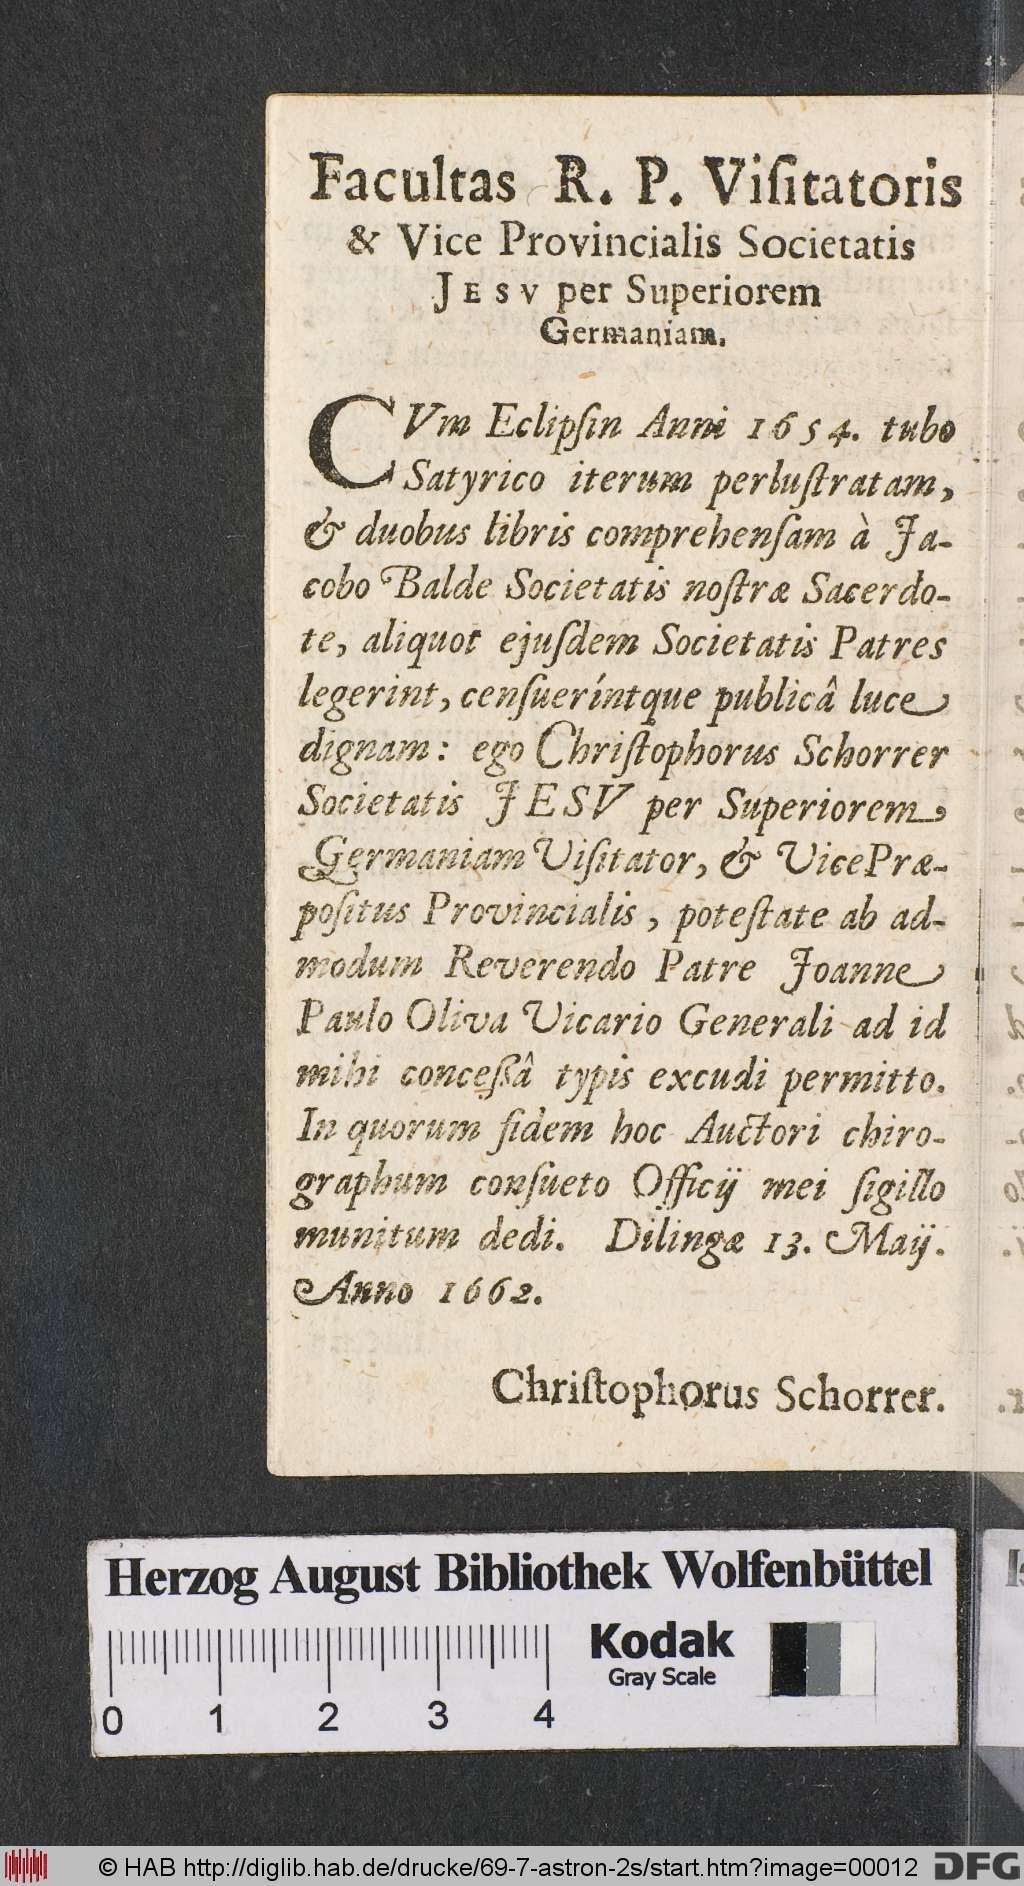 Facultas R. P. Viſitatoris
& Vice Provincialis Societatis
JESV per Superiorem
Germaniam.
CVm Eclipſin Anni 1654. tubo
Satyrico iterum perluſtratam,
& duobus libris comprehenſam à Ja-
cobo Balde Societatis noſtræ Sacerdo-
te, aliquot ejuſdem Societatis Patres
legerint, cenſueríntque publicâ luce
dignam: ego Chriſtophorus Schorrer
Societatis JESV per Superiorem
Germaniam Viſitator, & Vice Præ-
poſitus Provincialis, poteſtate ab ad-
modum Reverendo Patre Joanne
Paulo Oliva Vicario Generali ad id
mihi conceſsâ typis excudi permitto.
In quorum fidem hoc Auctori chiro-
graphum conſueto Officij mei ſigillo
munitum dedi. Dilingæ 13. Maij.
Anno 1662.
Chriſtophorus Schorrer.
Herzog August Bibliothek Wolfenbüttel
Kodak
Gray Scale
0 1 2 3 4
© HAB http://diglib.hab.de/drucke/69-7-astron-2s/start.htm?image=00012 DFG